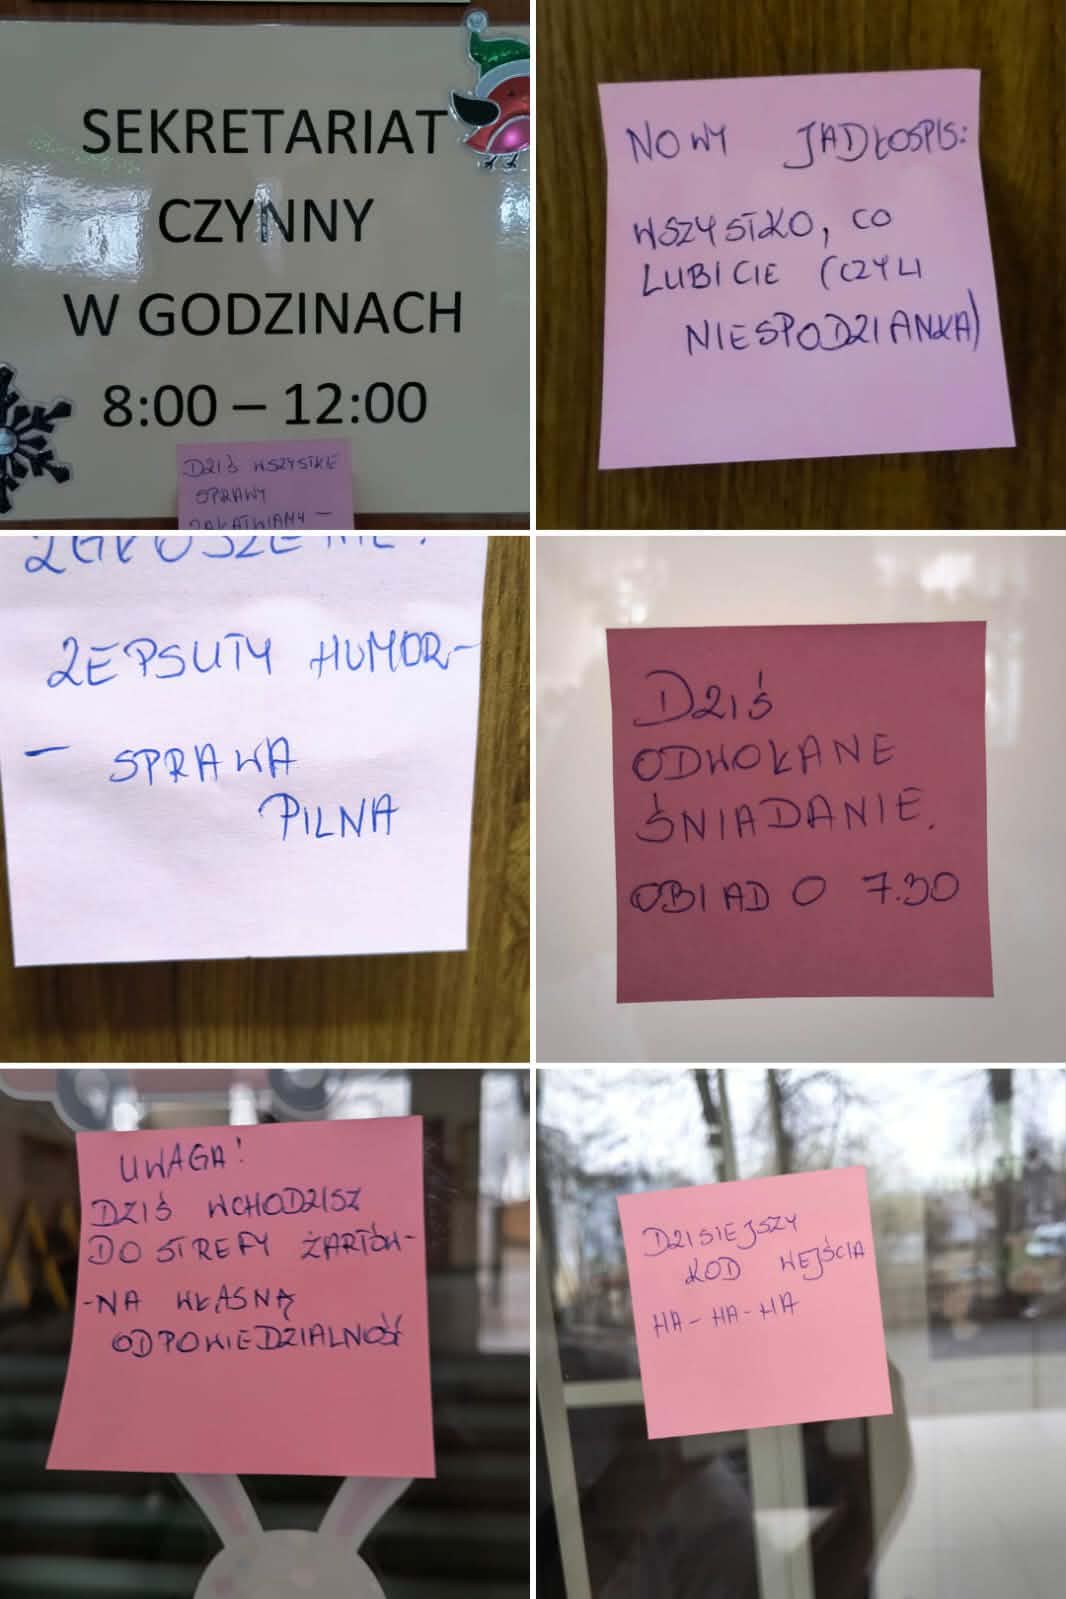 SEKRETARIAT
CZYNNY
W GODZINACH
8:00 – 12:00
DZIŚ WSZYSTKIE
SPRAWY
ZAŁATWIAMY –
NOWY JADŁOSPIS:
WSZYSTKO, CO
LUBICIE (CZYLI
NIESPODZIANKA)
ZGŁOSZENIE:
ZEPSUTY HUMOR –
– SPRAWA
PILNA
DZIŚ
ODWOŁANE
ŚNIADANIE.
OBIAD O 7.30
UWAGA!
DZIŚ WCHODZISZ
DO STREFY ŻARTÓW –
– NA WŁASNĄ
ODPOWIEDZIALNOŚĆ
DZISIEJSZY
KOD WEJŚCIA
HA – HA – HA